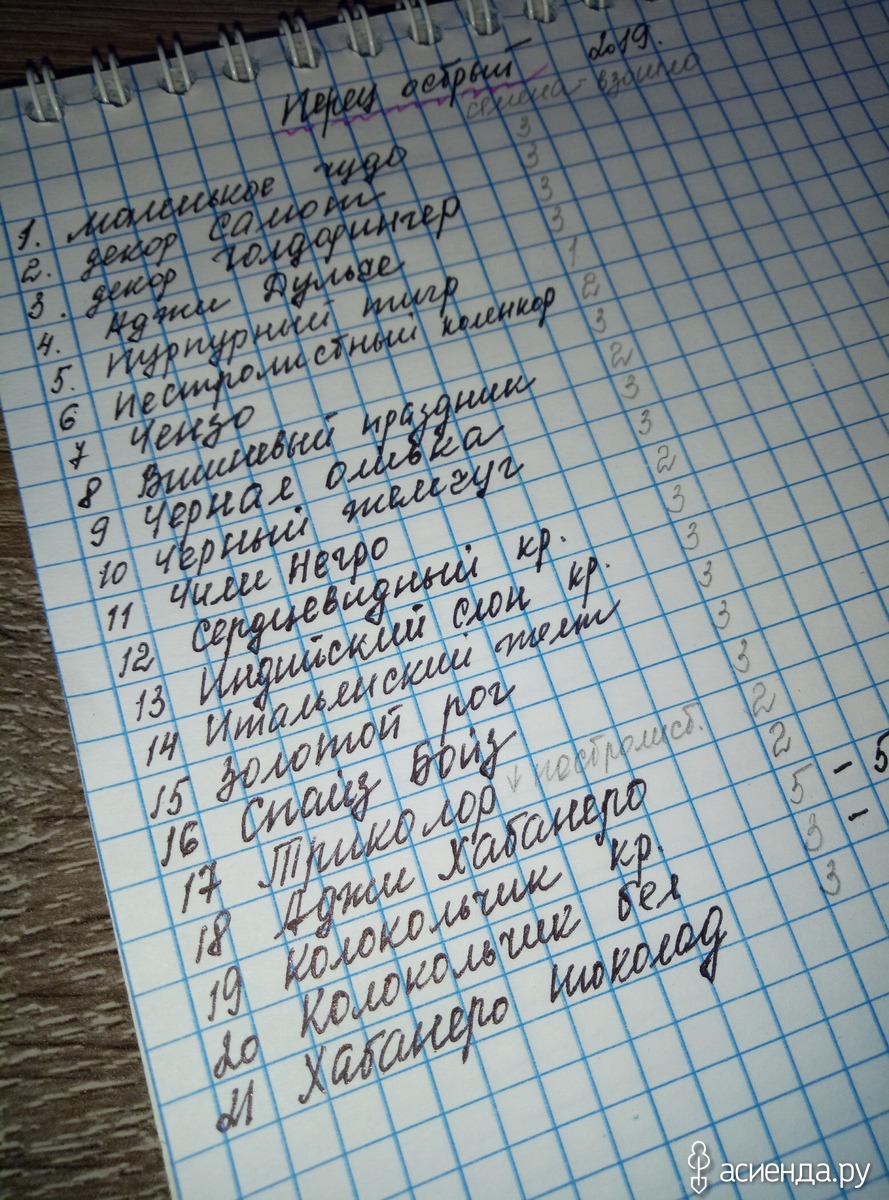 Перец острый 2019.
семена - взошло
1. Маленькое чудо 3
2. декор Самот 3
3. декор Голдфингер 3
4. Аджи Дульсе 3
5. Пурпурный тигр 1
6 Пестролистный коленкор 2
7 Чензо 3
8 Вишневый праздник 2
9 Черная оливка 3
10 Черный жемчуг 3
11 Чили Негро 2
12 Сердцевидный кр. 3
13 Индийский слон кр. 3
14 Итальянский желт 3
15 Золотой рог 3
16 Спайз Бойз 3
17 Триколор ↓ пестролист. 2
18 Аджи Хабанеро 2
19 Колокольчик кр. 5 - 5
20 Колокольчик бел 3 -
21 Хабанеро шоколад 3
асиенда.ру